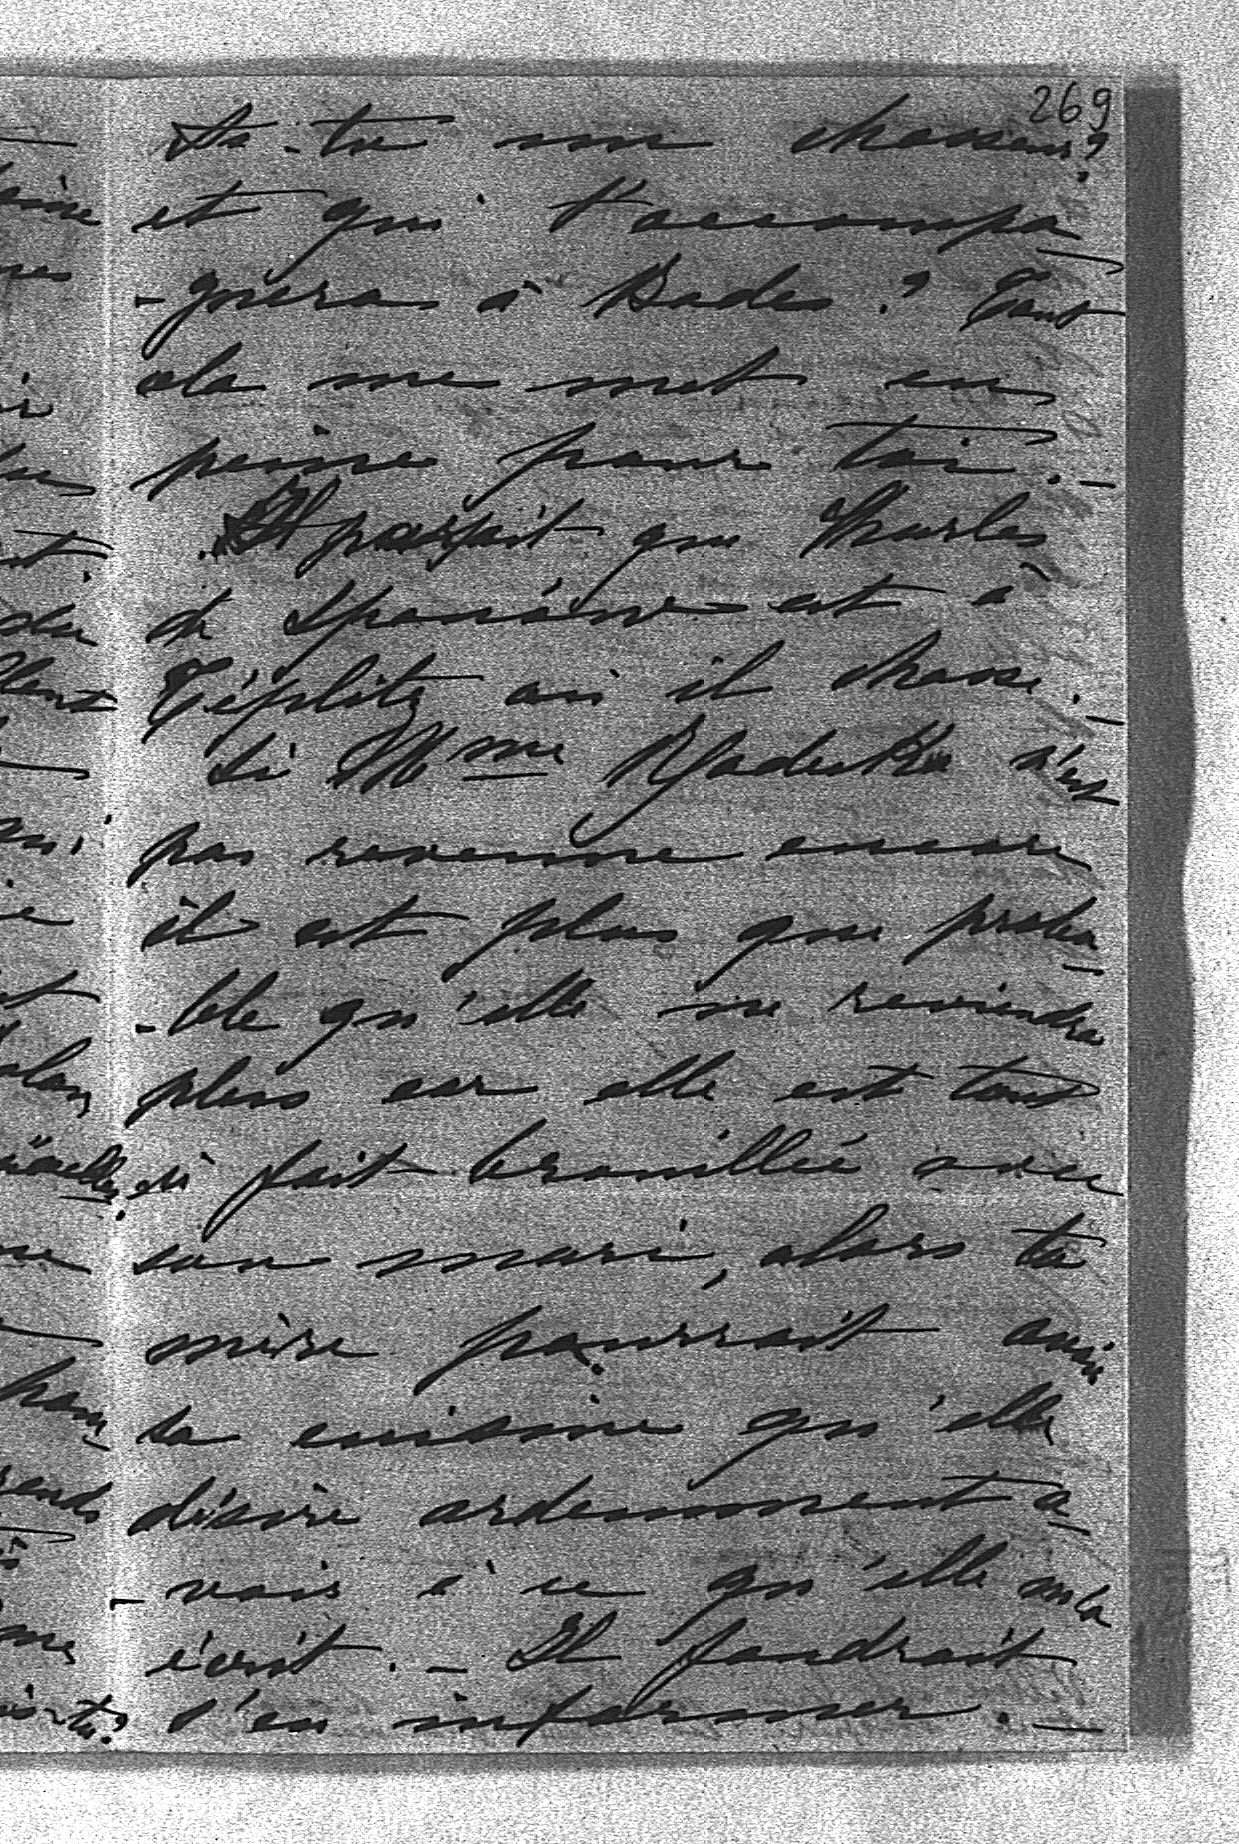 269
As-tu un chasseur?
et qui t'accompa-
-gnera à Bade ? Tout
cela me met en
peine pour toi. _
Il paraît que Charles
de est à
Téplitz où il chasse. _
Si Mme n'est
pas revenue encore
il est plus que proba-
-ble qu'elle ne reviendra
plus car elle est tout
à fait brouillée avec
son mari, alors ta
mère pourrait avoir
sa cuisine qu'elle
désire ardemment a-
-voir à ce qu'elle m'a
écrit. _ Il faudrait
s'en informer. _